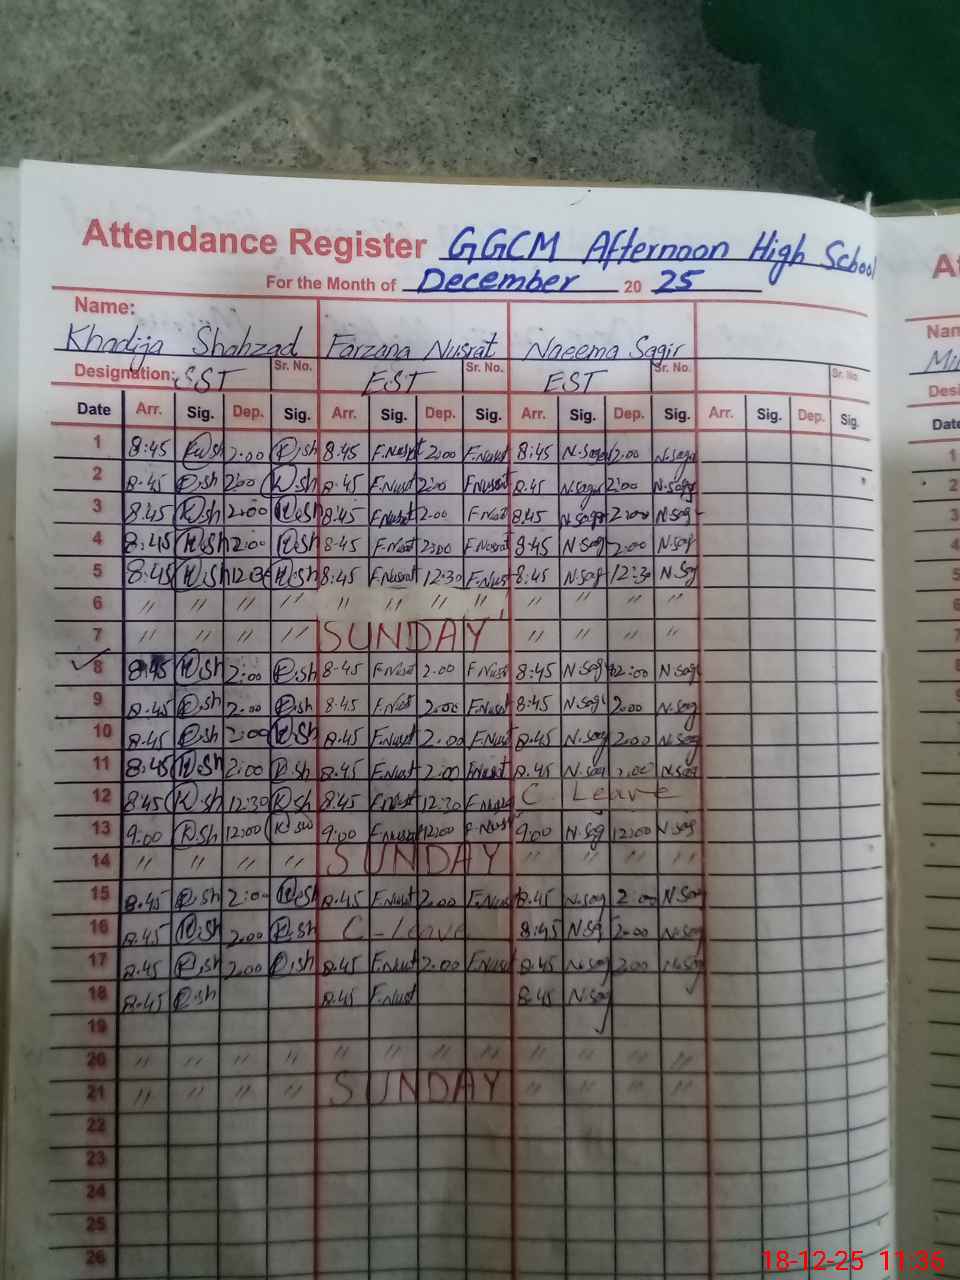 Attendance Register GGCM Afternoon High School
For the Month of December 20 25
Name:
Khadija Shahzad Farzana Nusrat Naeema Sagir
Designation: SST Sr. No. EST Sr. No. EST Sr. No. Sr. No.
Date Arr. Sig. Dep. Sig. Arr. Sig. Dep. Sig. Arr. Sig. Dep. Sig. Arr. Sig. Dep. Sig.
1 8:45 K.sh 2:00 K.sh 8:45 F.Nusrat 2:00 F.Nusrat 8:45 N.Sag 2:00 N.Sag
2 8.45 K.sh 2:00 K.sh 8.45 F.Nusrat 2:00 F.Nusrat 8.45 N.Sag 2:00 N.Sag
3 8:45 K.sh 2:00 K.sh 8:45 F.Nusrat 2.00 F.Nusrat 8:45 N.Sag 2:00 N.Sag
4 8:45 K.sh 2:00 K.sh 8-45 F.Nusrat 2:00 F.Nusrat 8:45 N.Sag 2:00 N.Sag
5 8:45 K.sh 12:30 K.sh 8:45 F.Nusrat 12:30 F.Nusrat 8:45 N.Sag 12:30 N.Sag
6 " " " " " " " " " " " "
7 " " " " SUNDAY " " " "
8 8:45 K.sh 2:00 K.sh 8-45 F.Nusrat 2.00 F.Nusrat 8:45 N.Sag 2:00 N.Sag
9 8.45 K.sh 2.00 K.sh 8.45 F.Nusrat 2:00 F.Nusrat 8:45 N.Sag 2.00 N.Sag
10 8.45 K.sh 2:00 K.sh 8.45 F.Nusrat 2.00 F.Nusrat 8.45 N.Sag 2.00 N.Sag
11 8:45 K.sh 2:00 K.sh 8.45 F.Nusrat 2.00 F.Nusrat 8.45 N.Sag 2.00 N.Sag
12 8:45 K.sh 12:30 K.sh 8:45 F.Nusrat 12:30 F.Nusrat C Leave
13 9:00 K.sh 12:00 K.sh 9:00 F.Nusrat 12:00 F.Nusrat 9:00 N.Sag 12:00 N.Sag
14 " " " " SUNDAY " " " "
15 8.45 K.sh 2:00 K.sh 8.45 F.Nusrat 2.00 F.Nusrat 8.45 N.Sag 2:00 N.Sag
16 8.45 K.sh 2.00 K.sh C-Leave 8:45 N.Sag 2:00 N.Sag
17 8.45 K.sh 2.00 K.sh 8.45 F.Nusrat 2.00 F.Nusrat 8.45 N.Sag 2.00 N.Sag
18 8.45 K.sh 8.45 F.Nusrat 8.45 N.Sag
19
20 " " " " " " " " " " " "
21 " " " " SUNDAY " " " "
22
23
24
25
26
18-12-25 11:36